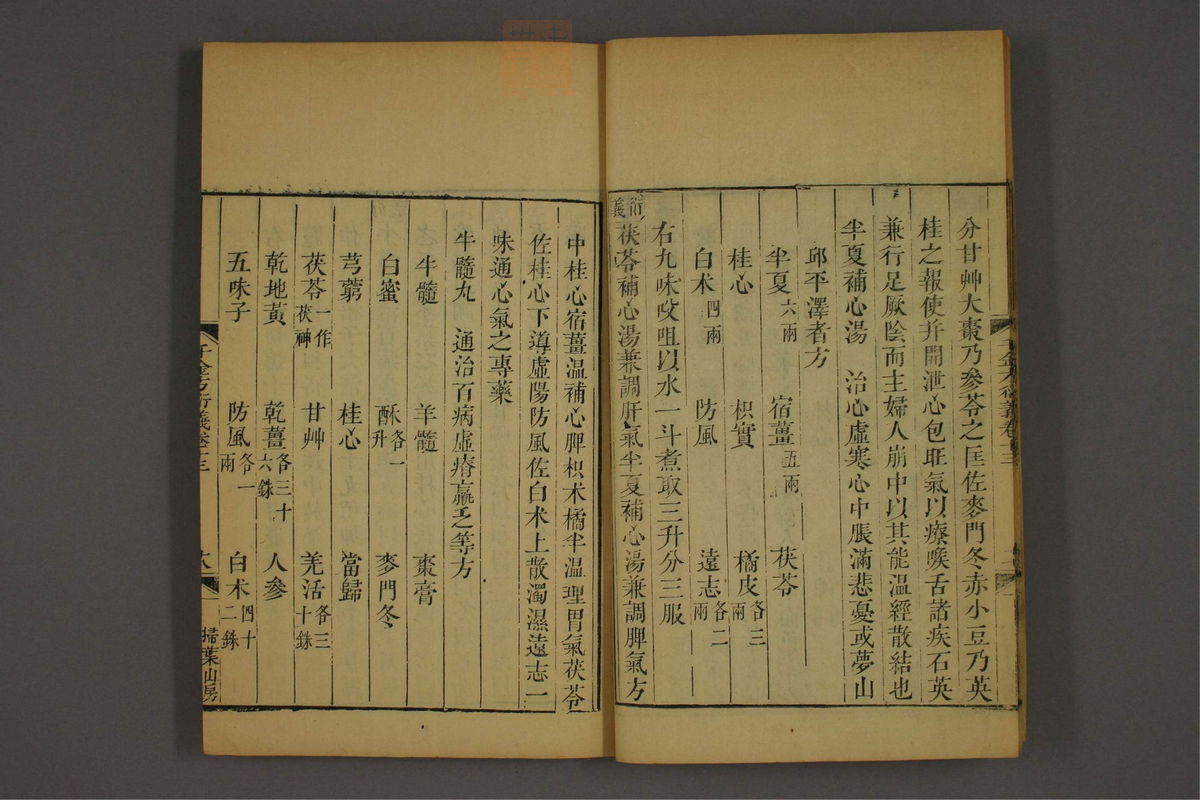 分甘艸大棗乃參苓之匡佐麥門冬赤小豆乃英
桂之報使并開泄心包旺氣以療喉舌諸疾石英
兼行足厥陰而主婦人崩中以其能溫經散結也
半夏補心湯 治心虛寒心中脹滿悲憂或夢山
邱平澤者方
半夏六兩 宿薑五兩 茯苓
桂心 枳實 橘皮各三兩
白朮四兩 防風 遠志各二兩
右九味㕮咀以水一斗煮取三升分三服
衍義 茯苓補心湯兼調肝氣半夏補心湯兼調脾氣方
中桂心宿薑溫補心脾枳朮橘半溫理胃氣茯苓
佐桂心下導虛陽防風佐白朮上散濁濕遠志一
味通心氣之專藥
牛髓丸 通治百病虛瘠羸乏等方
牛髓 羊髓 棗膏
白蜜 酥各一升 麥門冬
芎藭 桂心 當歸
茯苓一作茯神 甘艸 羌活各三十銖
乾地黃 乾薑各三十六銖 人參
五味子 防風各一兩 白朮四十二銖
千金方衍義卷十三
掃葉山房